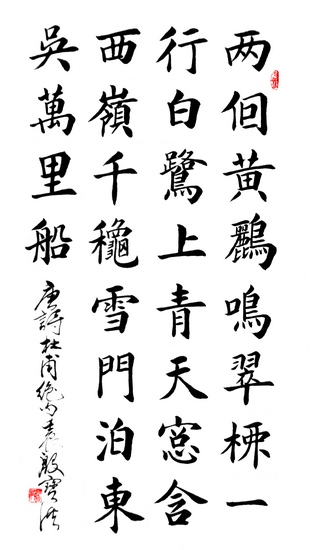 两個黄鸝鳴翠柳一
行白鷺上青天窓含
西嶺千穐雪門泊東
吳萬里船
唐詩杜甫絶句